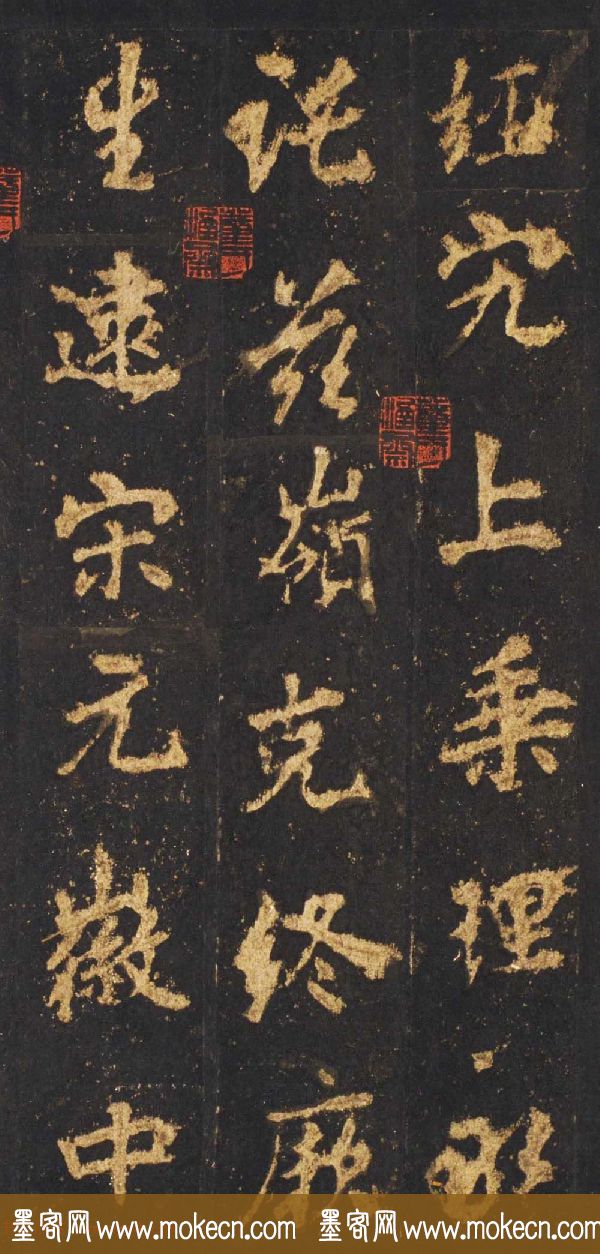 經究上乘理永
託茲嶺克終厥
生逮宋元徽中
墨客网 www.mokecn.com 墨客网 www.mokecn.com